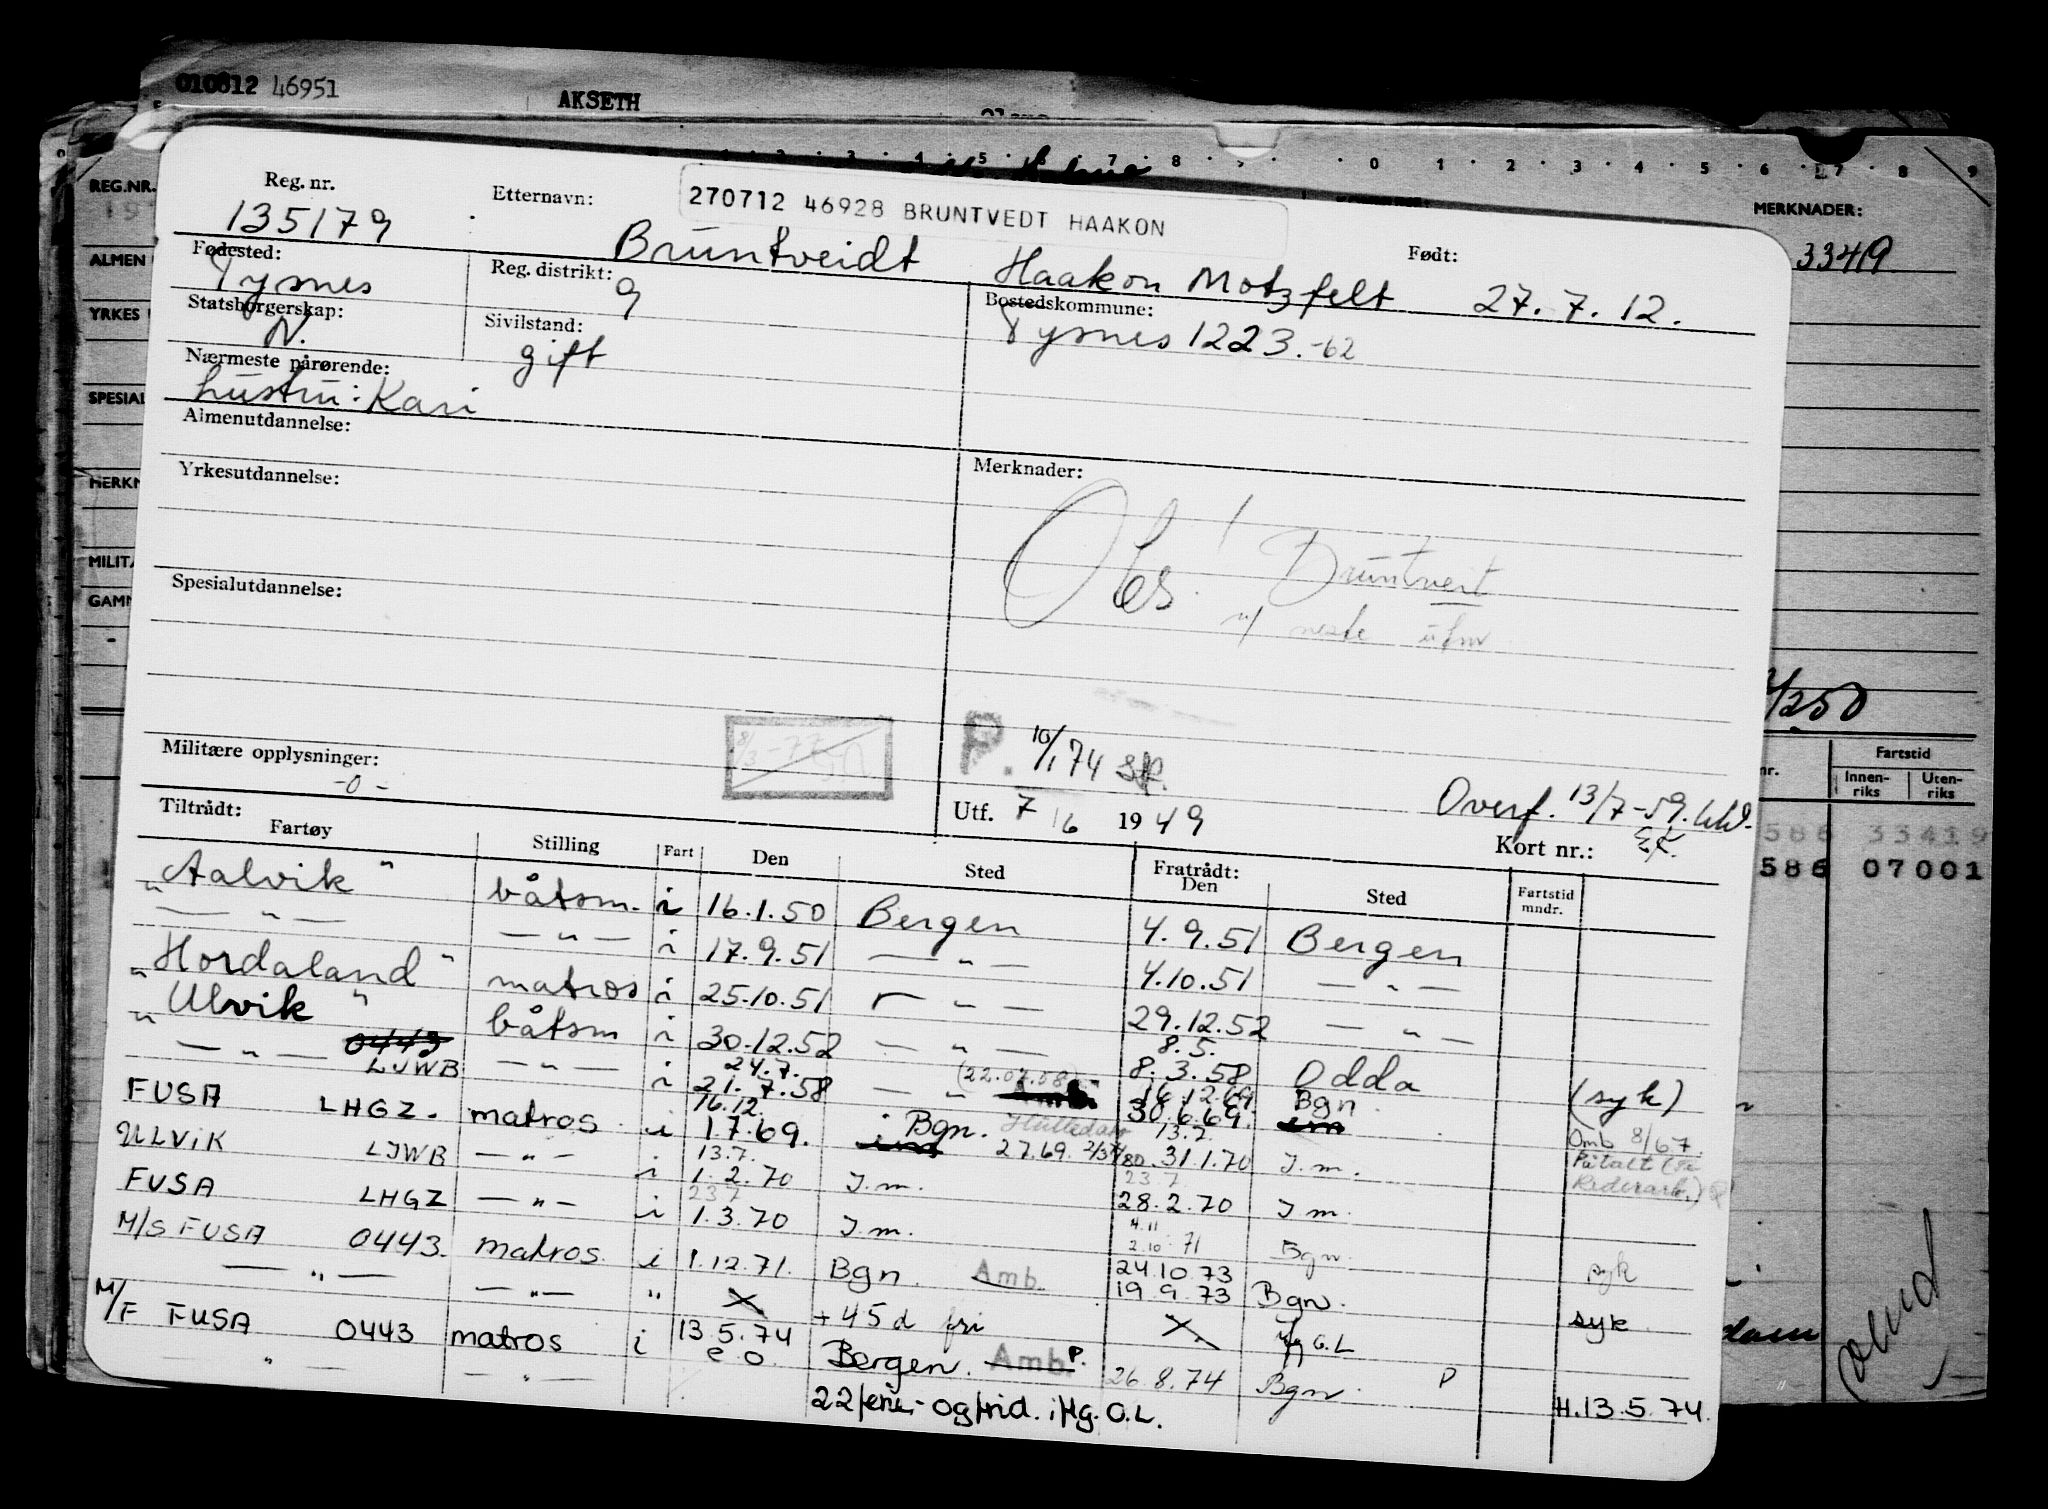 010812 46951
AKSETH
REG.NR.
ALMEN
YRKES
SPESIAL
MERKN
MILITÆ
GAMM
MERKNADER:
33419
/250
Fartstid
nr.
Innen-riks
Uten-riks
586 33419
586 07001
Reg. nr.
135179
Etternavn:
270712 46928 BRUNTVEDT HAAKON
Bruntveidt Haakon Motzfelt
Født:
27.7.12.
Fødested:
Tysnes
Reg. distrikt:
9
Bostedskommune:
Tysnes 1223.-62
Statsborgerskap:
N.
Sivilstand:
gift
Nærmeste pårørende:
hustru: Kari
Almenutdannelse:
Yrkesutdannelse:
Merknader:
Obs! Bruntveit
v/ neste
Spesialutdannelse:
Militære opplysninger:
-0-
8/3-77
P. 10/1 74
Utf. 7/6 1949
Overf. 13/7-59.
Kort nr.:
Tiltrådt:
Fartøy Stilling Fart Den Sted Fratrådt: Den Sted Fartstid mndr.
"Aalvik" båtsm. i 16.1.50 Bergen 4.9.51 Bergen
— " — — " — i 17.9.51 — " — 4.10.51 — " —
"Hordaland" matros i 25.10.51 — " — 29.12.52 — " —
"Ulvik" båtsm i 30.12.52 — " — 8.5. 8.3.58 Odda (syk)
— " — 0443 LJWB — " — i 24.7. 21.7.58 — " — (22.07.08) Amb. 16.12.69 30.6.69. Bgn. Omb 8/67.
FUSA LHGZ. matros i 16.12. 1.7.69. Bgn. 2.7.69. 13.7. 31.1.70 I.m. Påtalt
ULVIK LJWB — " — i 13.7. 1.2.70 I.m. 23.7. 28.2.70 I m.
FUSA LHGZ — " — i 23.7 1.3.70 I.m. 4.11 2.10.71 Bgn. syk
M/S FUSA 0443. matros. i 1.12.71. Bgn. Amb. 24.10.73 19.9.73 Bgn. syk.
— " — — " — " X +45 d fri X. G.L
M/F FUSA 0443 matros i 13.5.74 Bergen. Amb. P. 26.8.74 Bgn. P
" — — " — e.o. 22 ferie- og frid. i.flg. O.L. H.13.5.74.